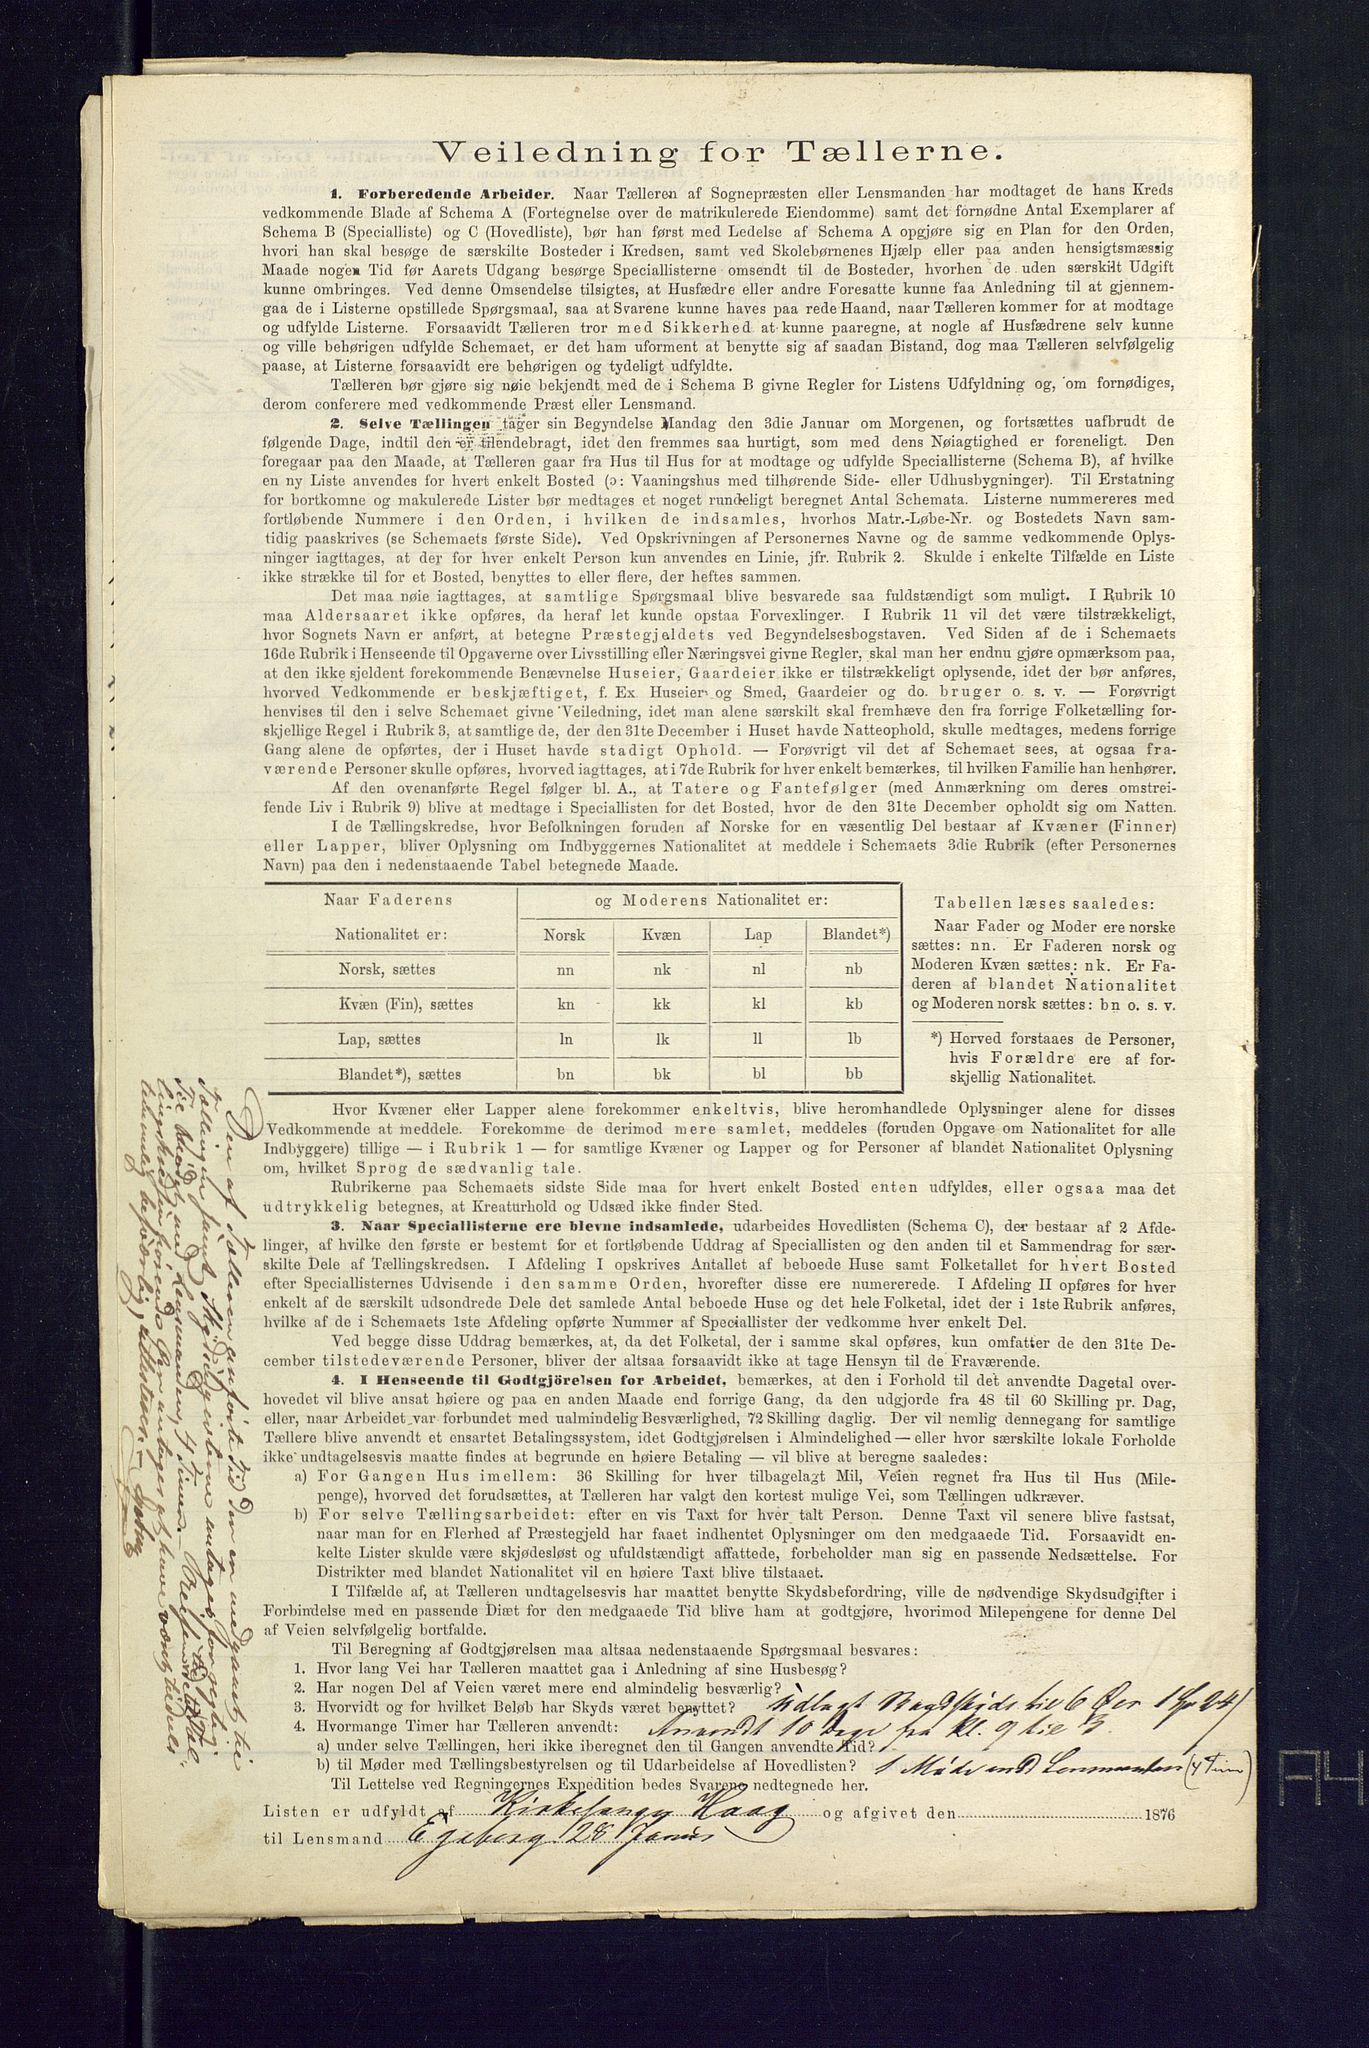 Veiledning for Tællerne.
1. Forberedende Arbeider. Naar Tælleren af Sognepræsten eller Lensmanden har modtaget de hans Kreds
vedkommende Blade af Schema A (Fortegnelse over de matrikulerede Eiendomme) samt det fornødne Antal Exemplarer af
Schema B (Specialliste) og C (Hovedliste), bør han først med Ledelse af Schema A opgjøre sig en Plan for den Orden,
hvori han skal besøge de særskilte Bosteder i Kredsen, samt ved Skolebørnenes Hjælp eller paa anden hensigtsmæssig
Maade nogen Tid før Aarets Udgang besørge Speciallisterne omsendt til de Bosteder, hvorhen de uden særskilt Udgift
kunne ombringes. Ved denne Omsendelse tilsigtes, at Husfædre eller andre Foresatte kunne faa Anledning til at gjennem-
gaa de i Listerne opstillede Spørgsmaal, saa at Svarene kunne haves paa rede Haand, naar Tælleren kommer for at modtage
og udfylde Listerne. Forsaavidt Tælleren tror med Sikkerhed at kunne paaregne, at nogle af Husfædrene selv kunne
og ville behørigen udfylde Schemaet, er det ham uforment at benytte sig af saadan Bistand, dog maa Tælleren selvfølgelig
paase, at Listerne forsaavidt ere behørigen og tydeligt udfyldte.
Tælleren bør gjøre sig nøie bekjendt med de i Schema B givne Regler for Listens Udfyldning og, om fornødiges,
derom conferere med vedkommende Præst eller Lensmand.
2. Selve Tællingen tager sin Begyndelse Mandag den 3die Januar om Morgenen, og fortsættes uafbrudt de
følgende Dage, indtil den er tilendebragt, idet den fremmes saa hurtigt, som med dens Nøiagtighed er foreneligt. Den
foregaar paa den Maade, at Tælleren gaar fra Hus til Hus for at modtage og udfylde Speciallisterne (Schema B), af hvilke
en ny Liste anvendes for hvert enkelt Bosted (ɔ: Vaaningshus med tilhørende Side- eller Udhusbygninger). Til Erstatning
for bortkomne og makulerede Lister bør medtages et noget rundeligt beregnet Antal Schemata. Listerne nummereres med
fortløbende Nummere i den Orden, i hvilken de indsamles, hvorhos Matr.-Løbe-Nr. og Bostedets Navn sam-
tidig paaskrives (se Schemaets første Side). Ved Opskrivningen af Personernes Navne og de samme vedkommende Oplys-
ninger iagttages, at der for hver enkelt Person kun anvendes en Linie, jfr. Rubrik 2. Skulde i enkelte Tilfælde en Liste
ikke strække til for et Bosted, benyttes to eller flere, der heftes sammen.
Det maa nøie iagttages, at samtlige Spørgsmaal blive besvarede saa fuldstændigt som muligt. I Rubrik 10
maa Aldersaaret ikke opføres, da heraf let kunde opstaa Forvexlinger. I Rubrik 11 vil det være tilstrækkeligt,
hvor Sognets Navn er anført, at betegne Præstegjeldets ved Begyndelsesbogstaven. Ved Siden af de i Schemaets
16de Rubrik i Henseende til Opgaverne over Livsstilling eller Næringsvei givne Regler, skal man her endnu gjøre opmærksom paa,
at den ikke sjeldent forekommende Benævnelse Huseier, Gaardeier ikke er tilstrækkeligt oplysende, idet der bør anføres,
hvorved Vedkommende er beskjæftiget, f. Ex. Huseier og Smed, Gaardeier og do. bruger o. s. v. — Forøvrigt
henvises til den i selve Schemaet givne Veiledning, idet man alene særskilt skal fremhæve den fra forrige Folketælling for-
skjellige Regel i Rubrik 3, at samtlige de, der den 31te December i Huset havde Natteophold, skulle medtages, medens forrige
Gang alene de opførtes, der i Huset havde stadigt Ophold. — Forøvrigt vil det af Schemaet sees, at ogsaa fra-
værende Personer skulle opføres, hvorved iagttages, at i 7de Rubrik for hver enkelt bemærkes, til hvilken Familie han henhører.
Af den ovenanførte Regel følger bl. A., at Tatere og Fantefølger (med Anmærkning om deres omstrei-
fende Liv i Rubrik 9) blive at medtage i Speciallisten for det Bosted, hvor de den 31te December opholdt sig om Natten.
I de Tællingskredse, hvor Befolkningen foruden af Norske for en væsentlig Del bestaar af Kvæner (Finner)
eller Lapper, bliver Oplysning om Indbyggernes Nationalitet at meddele i Schemaets 3die Rubrik (efter Personernes
Navn) paa den i nedenstaaende Tabel betegnede Maade.
Naar Faderens og Moderens Nationalitet er:
Nationalitet er: Norsk Kvæn Lap Blandet*)
Norsk, sættes nn nk nl nb
Kvæn (Fin), sættes kn kk kl kb
Lap, sættes ln lk ll lb
Blandet*), sættes bn bk bl bb
Tabellen læses saaledes:
Naar Fader og Moder ere norske
sættes: nn. Er Faderen norsk og
Moderen Kvæn sættes: nk. Er Fa-
deren af blandet Nationalitet
og Moderen norsk sættes: bn o. s. v.
*) Herved forstaaes de Personer,
hvis Forældre ere af for-
skjellig Nationalitet.
Hvor Kvæner eller Lapper alene forekommer enkeltvis, blive heromhandlede Oplysninger alene for disses
Vedkommende at meddele. Forekomme de derimod mere samlet, meddeles (foruden Opgave om Nationalitet for alle
Indbyggere) tillige — i Rubrik 1 — for samtlige Kvæner og Lapper og for Personer af blandet Nationalitet Oplysning
om, hvilket Sprog de sædvanlig tale.
Rubrikerne paa Schemaets sidste Side maa for hvert enkelt Bosted enten udfyldes, eller ogsaa maa det
udtrykkelig betegnes, at Kreaturhold og Udsæd ikke finder Sted.
3. Naar Speciallisterne ere blevne indsamlede, udarbeides Hovedlisten (Schema C), der bestaar af 2 Afde-
linger, af hvilke den første er bestemt for et fortløbende Uddrag af Speciallisten og den anden til et Sammendrag for sær-
skilte Dele af Tællingskredsen. I Afdeling I opskrives Antallet af beboede Huse samt Folketallet for hvert Bosted
efter Speciallisternes Udvisende i den samme Orden, hvorefter disse ere numererede. I Afdeling II opføres for hver
enkelt af de særskilt udsondrede Dele det samlede Antal beboede Huse og det hele Folketal, idet der i 1ste Rubrik anføres,
hvilke af de i Schemaets 1ste Afdeling opførte Nummer af Speciallister der vedkomme hver enkelt Del.
Ved begge disse Uddrag bemærkes, at, da det Folketal, der i samme skal opføres, kun omfatter de den 31te De-
cember tilstedeværende Personer, bliver der altsaa forsaavidt ikke at tage Hensyn til de Fraværende.
4. I Henseende til Godtgjörelsen for Arbeidet, bemærkes, at den i Forhold til det anvendte Dagetal over-
hovedet vil blive ansat høiere og paa en anden Maade end forrige Gang, da den udgjorde fra 48 til 60 Skilling pr. Dag,
eller, naar Arbeidet var forbundet med ualmindelig Besværlighed, 72 Skilling daglig. Der vil nemlig dennegang for samtlige
Tællere blive anvendt et ensartet Betalingssystem, idet Godtgjørelsen i Almindelighed — eller hvor særskilte lokale Forholde
ikke undtagelsesvis maatte findes at begrunde en høiere Betaling — vil blive at beregne saaledes:
a) For Gangen Hus imellem: 36 Skilling for hver tilbagelagt Mil, Veien regnet fra Hus til Hus (Mile-
penge), hvorved det forudsættes, at Tælleren har valgt den kortest mulige Vei, som Tællingen udkræver.
b) For selve Tællingsarbeidet: efter en vis Taxt for hver talt Person. Denne Taxt vil senere blive fastsat,
naar man for en Flerhed af Præstegjeld har faaet indhentet Oplysninger om den medgaaede Tid. Forsaavidt en-
kelte Lister skulde være skjødesløst og ufuldstændigt affattede, forbeholder man sig en passende Nedsættelse. For
Distrikter med blandet Nationalitet vil en høiere Taxt blive tilstaaet.
I Tilfælde af, at Tælleren undtagelsesvis har maattet benytte Skydsbefordring, ville de nødvendige Skydsudgifter i
Forbindelse med en passende Diæt for den medgaaede Tid blive ham at godtgjøre, hvorimod Milepengene for denne Del
af Veien selvfølgelig bortfalde.
Til Beregning af Godtgjørelsen maa altsaa nedenstaaende Spørgsmaal besvares:
1. Hvor lang Vei har Tælleren maattet gaa i Anledning af sine Husbesøg?
2. Har nogen Del af Veien været mere end almindelig besværlig?
3. Hvorvidt og for hvilket Beløb har Skyds været benyttet? Udlagt til 6 Øer 1 Sp 24
4. Hvormange Timer har Tælleren anvendt: Anvendt 10 Dage fra Kl. 9 til 3.
a) under selve Tællingen, heri ikke iberegnet den til Gangen anvendte Tid?
b) til Møder med Tællingsbestyrelsen og til Udarbeidelse af Hovedlisten? 1 Møde med Lensmanden (4 Timer)
Til Lettelse ved Regningernes Expedition bedes Svarene nedtegnede her.
Listen er udfyldt af Kirkesanger Haag og afgivet den 1876
til Lensmand Egeberg 28 Januar
Den af Tælleren anførte Tid, der er medgaaet til
Tællingen samt Skydsudgifterne antages
med Lensmanden, 4 Timer.